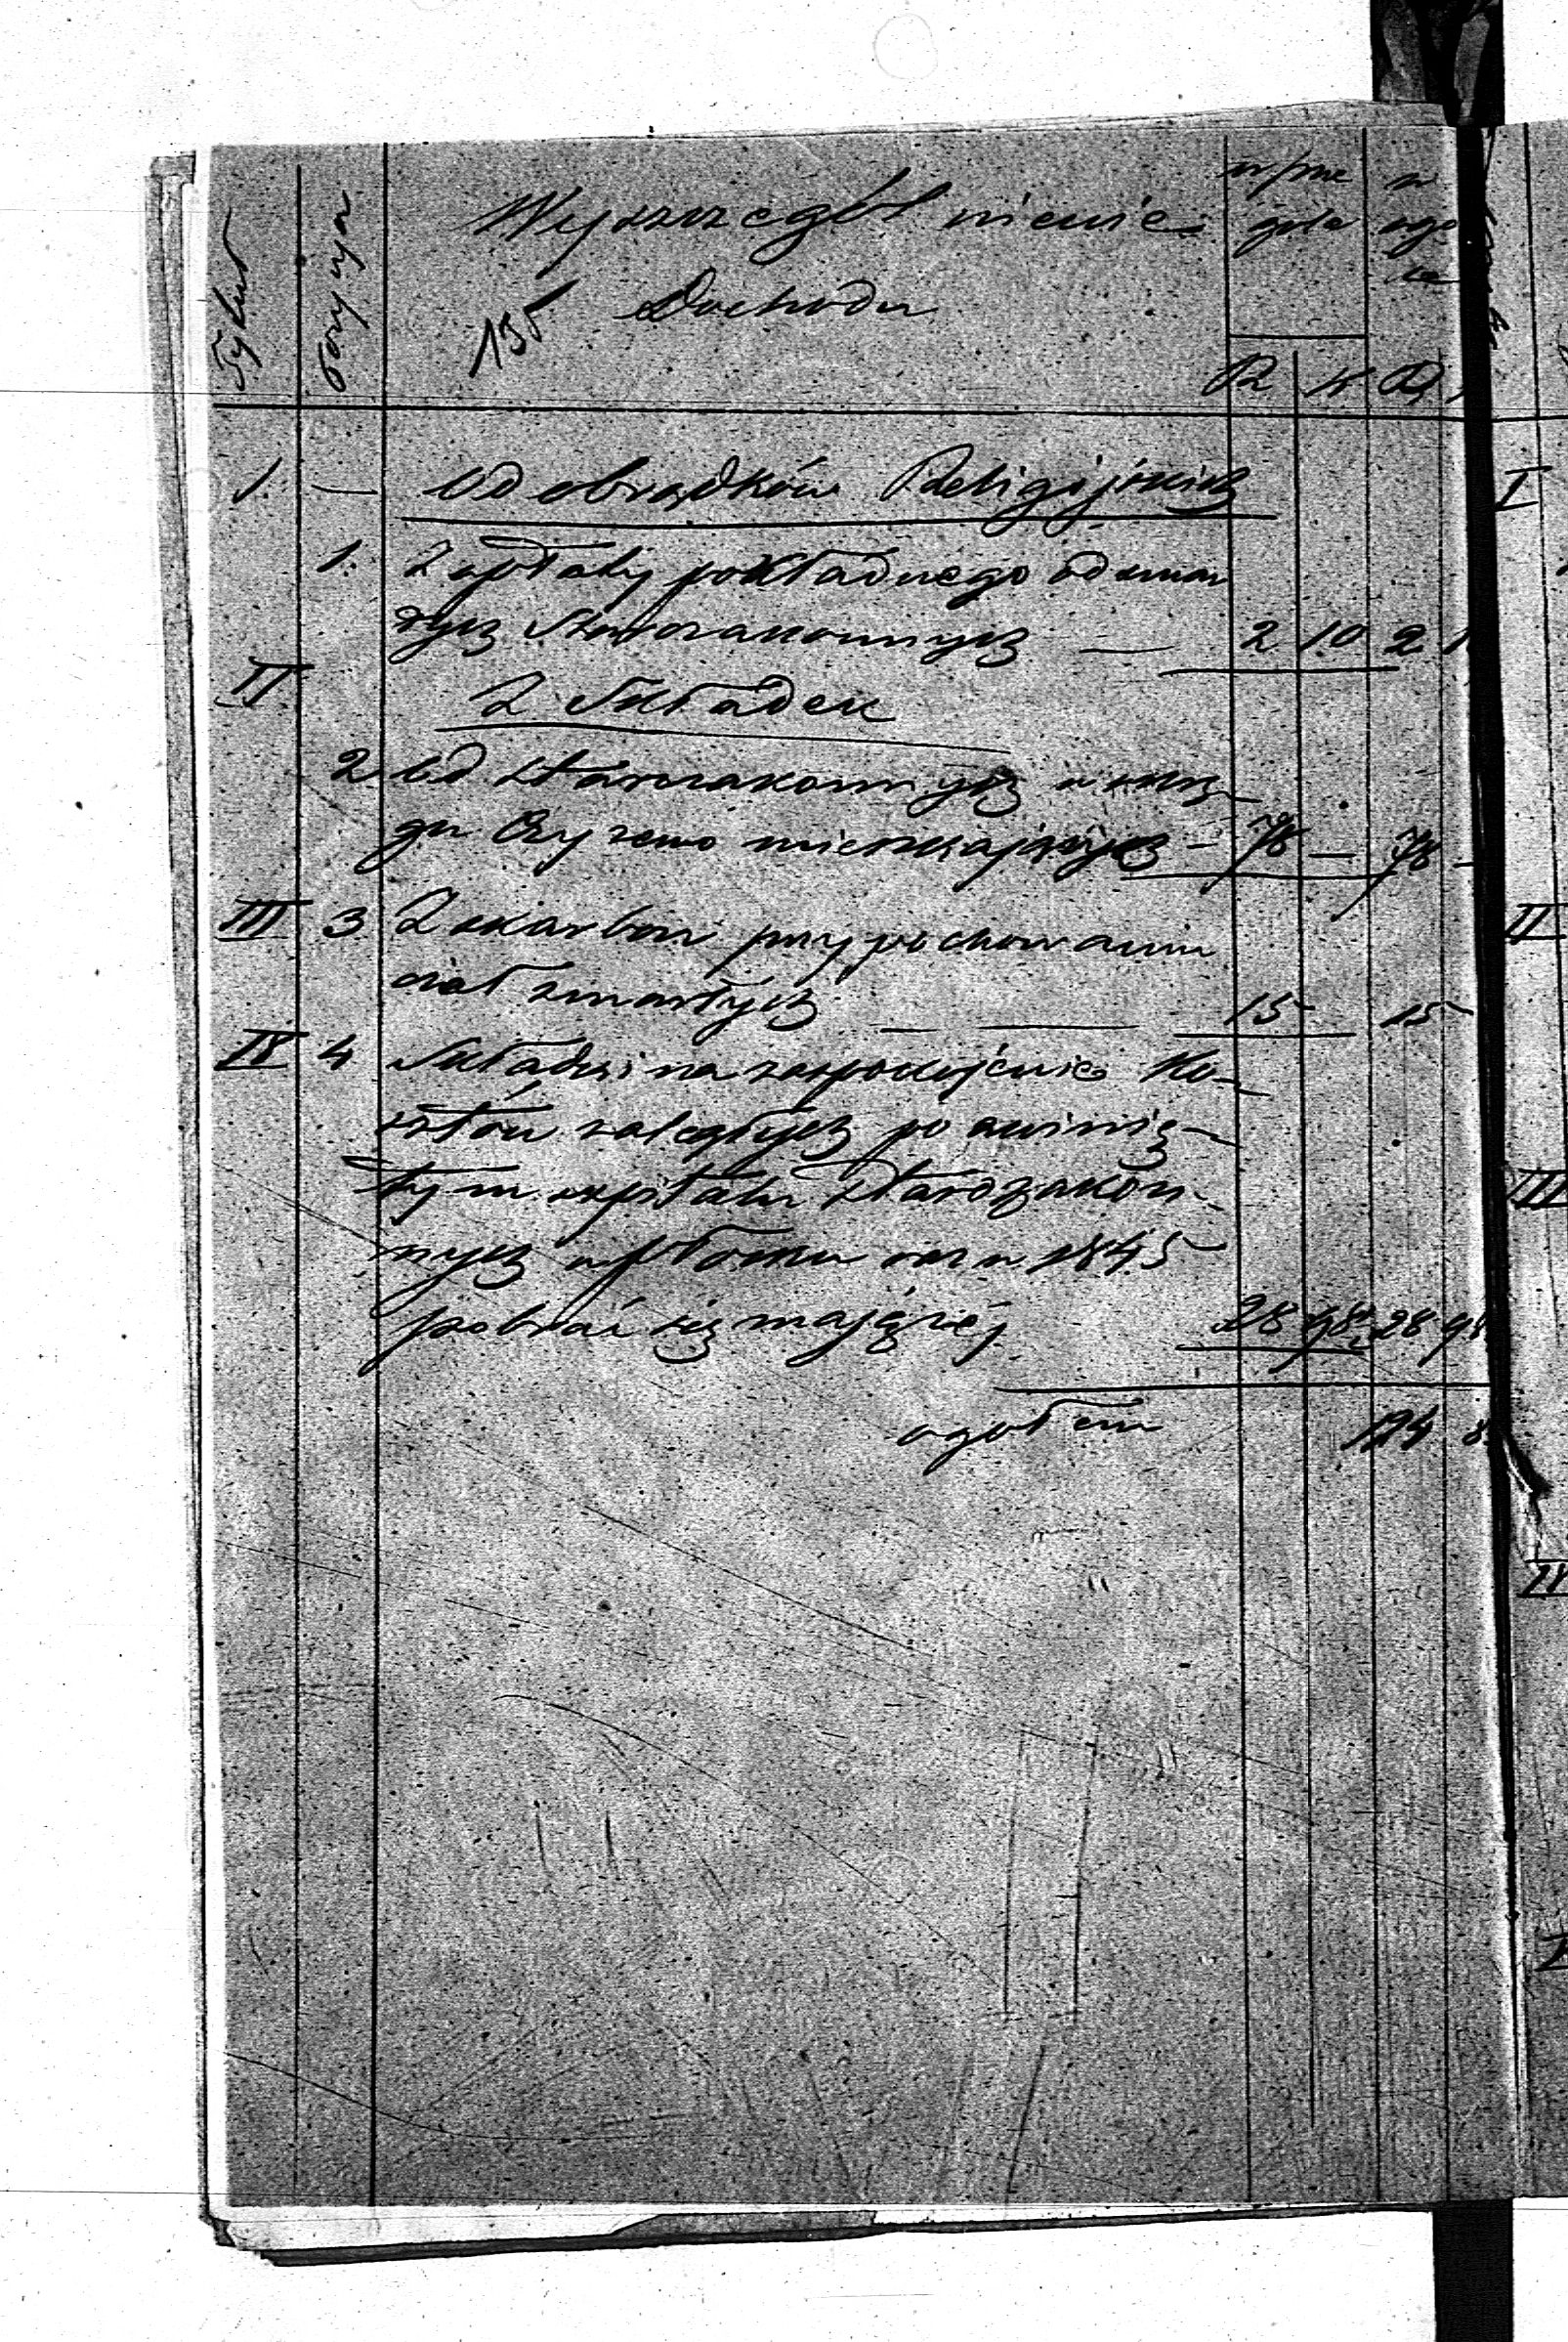 Tytuł
Pozycya
Wyszczególnienie
Dochodu
w szcze
góle
w
ogó
le
R K R
I. — Od obrządków Religijnych
1. Z opłaty pokładnego od zmar
łych Starozakonnych — 2 10 2 1
II
Z Składek
2 Od starozakonnych w okrę-
gu Czyżewo mieszkających - 78 — 78 -
III 3 Z skarbon przy pochowaniu
ciał zmarłych — — 15 15
IV 4 Składki na zaspokojenie Ko-
sztów zaległych po zwinię-
tym szpitalu starozakon-
nych w Płocku w 1845
pobrać się mającej 28 98 28 98
ogółem 124 8
I
II
III